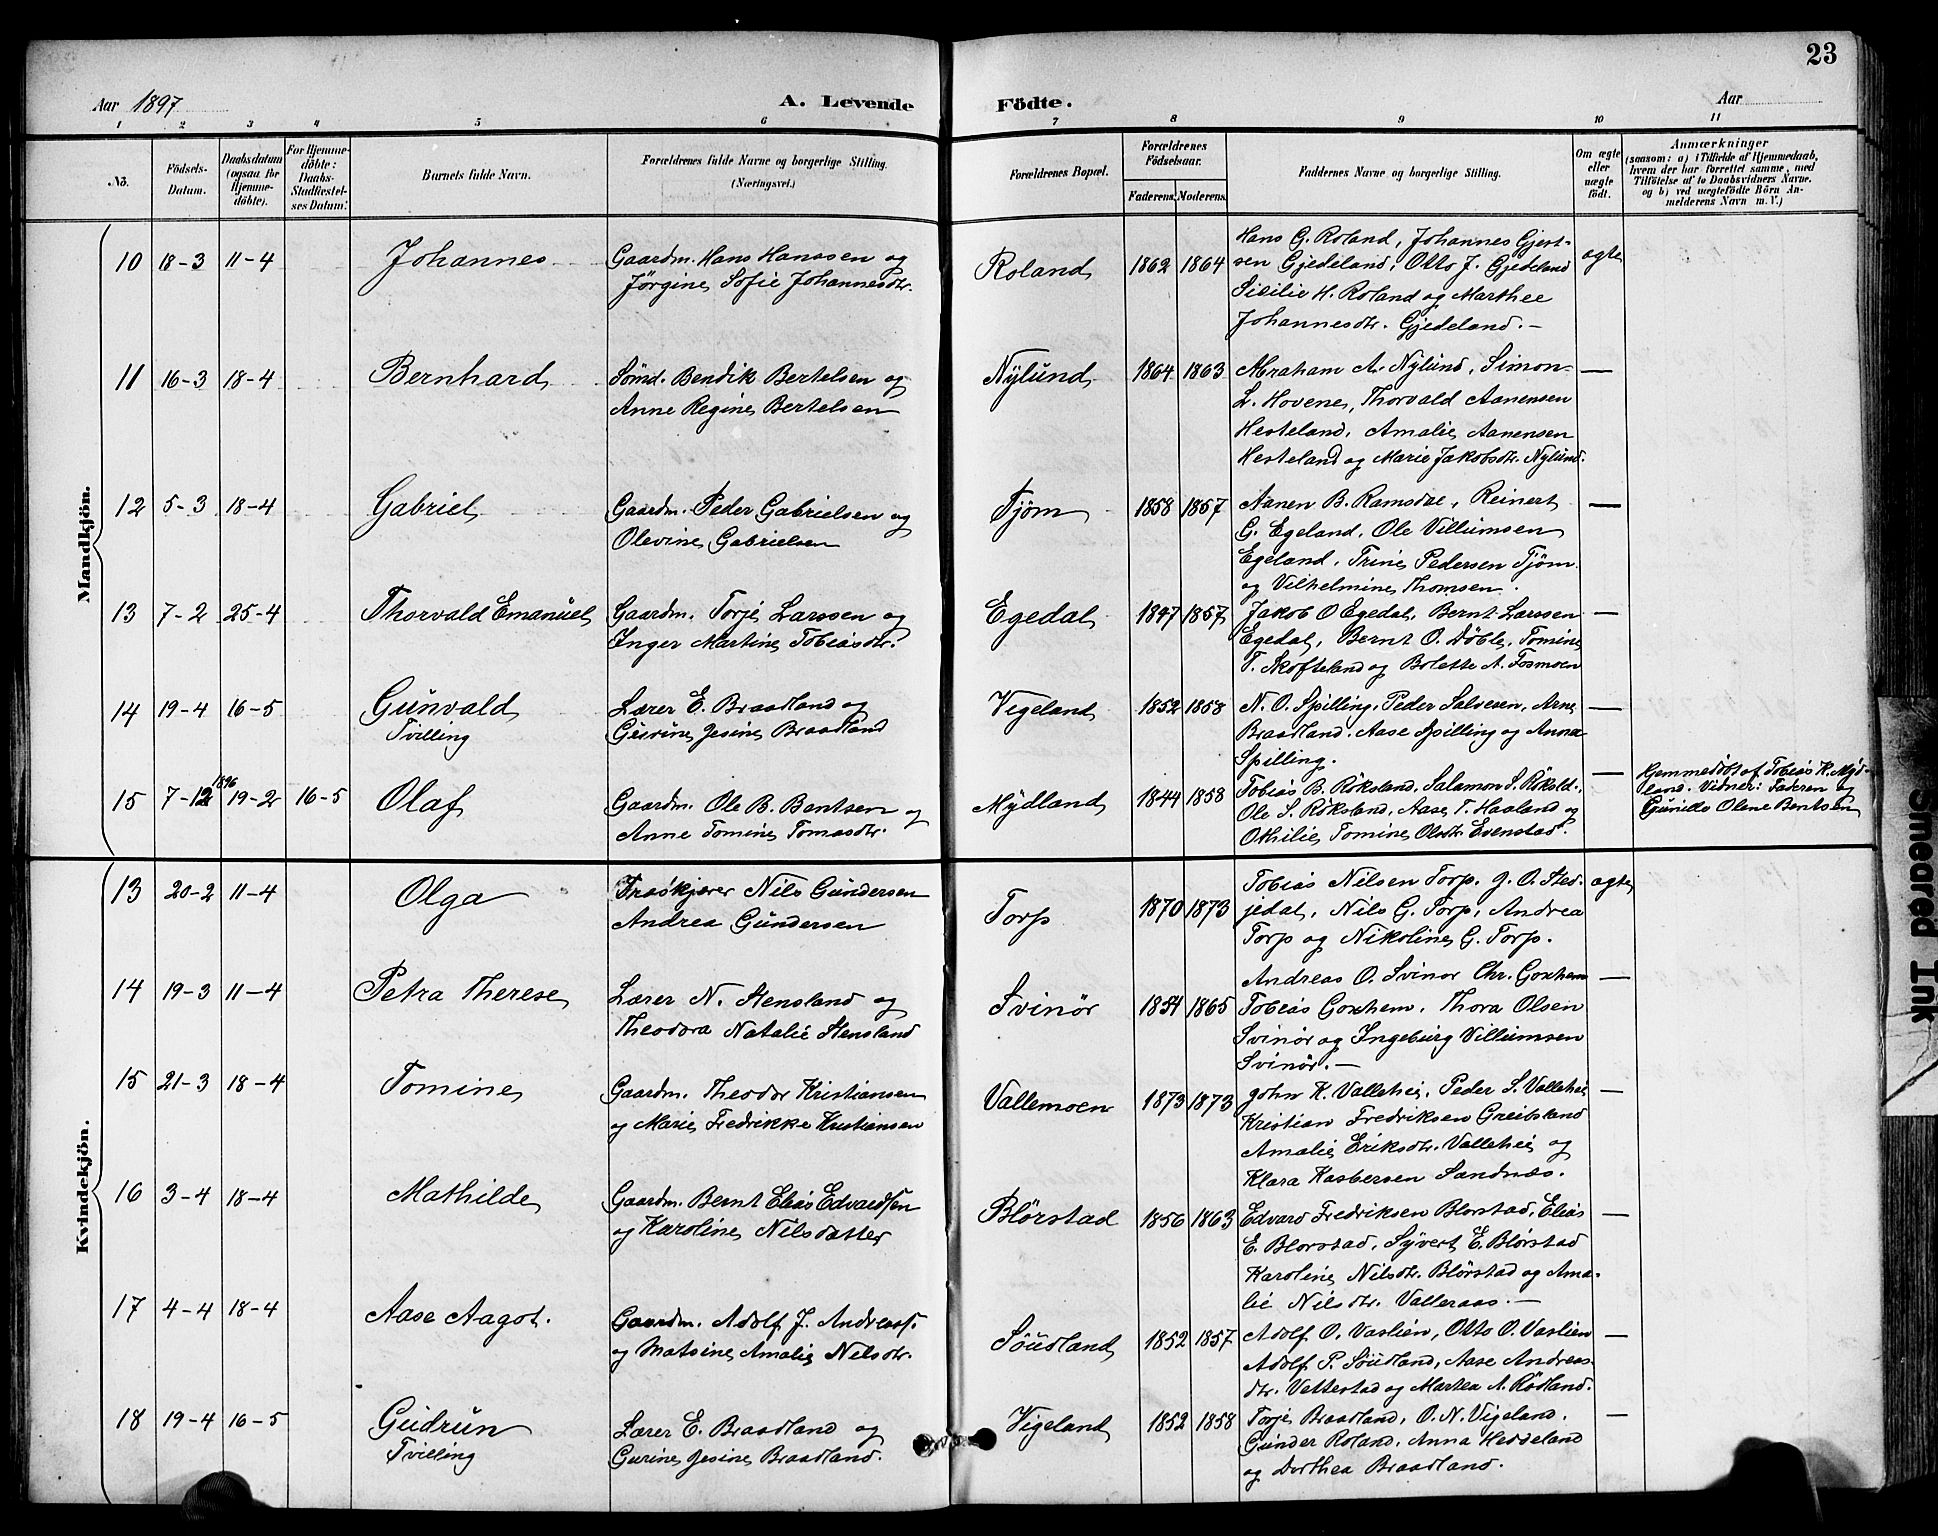 23
Aar 1897
A. Levende Födte.
Aar
1 2 3 4 5 6 7 8 9 10 11
No.
Födsels-Datum.
Daabsdatum (ogsaa for Hjemmedöbte).
For Hjemmedöbte: Daabs-Stadfæstelses Datum.
Barnets fulde Navn.
Forældrenes fulde Navne og borgerlige Stilling. (Næringsvei.)
Forældrenes Bopæl.
Forældrenes Födselsaar.
Faderens. Moderens.
Faddernes Navne og borgerlige Stilling.
Om ægte eller uægte födt.
Anmærkninger
(saasom: a) i Tilfælde af Hjemmedaab, hvem der har forrettet samme, med Tilföielse af to Daabsvidners Navne. og b) ved uægtefödte Börn Anmelderens Navn m. V.)
Mandkjön.
10 18-3 11-4 Johannes
Gaardm. Hans Hanssen og
Jörgine Sofie Johannesdtr.
Roland 1862 1864
Hans G. Roland, Johannes Gjert-
sen Gjedeland, Otto J. Gjedeland
Sicilie H. Roland og Marthee
Johannesdtr. Gjedeland. —
ægte
11 16-3 18-4 Bernhard
Sömd. Bendik Bertelsen og
Anne Regine Bertelsen
Nylund 1864 1863
Abraham A. Nylund, Simon
L. Hovene, Thorvald Aanensen
Hesteland, Amalie Aanensen
Hesteland og Marie Jakobsdtr. Nylund.
—
12 5-3 18-4 Gabriel
Gaardm. Peder Gabrielsen og
Olevine Gabrielsen
Tjöm 1858 1857
Aanen B. Ramsdae, Reinert
G. Egeland, Ole Villumsen
Egeland, Trine Pedersen Tjöm
og Vilhelmine Thomsen.
—
13 7-2 25-4 Thorvald Emanuel
Gaardm. Torje Larssen og
Inger Martine Tobiasdtr.
Egedal 1847 1857
Jakob O Egedal, Bernt Larssen
Egedal, Bernt O. Döble, Tomine
T. Skofteland og Bolette A. Tosmoen
—
14 19-4 16-5 Gunvald
Tvilling
Lærer E. Braadland og
Gurine Jesine Braadland
Vigeland 1852 1858
N. O. Spilling, Peder Salvesen, Arne
Braadland, Aase Spilling og Anna
Spilling.
—
15 7-12 1896 19-2 16-5 Olaf
Gaardm. Ole B. Bentsen og
Anne Tomine Tomasdtr.
Mydland 1844 1858
Tobias B. Röksland, Salamon S. Röksld.,
Ole S. Röksland, Aase T. Haaland og
Othilie Tomine Olsdtr Evenstad.
—
Hjemmedöbt af Tobias K. Myd-
land. Vidner: Faderen og
Gunille Olene Bentsen
Kvindekjön.
13 20-2 11-4 Olga
Træskjærer Nils Gundersen
Andrea Gundersen
Torp 1870 1873
Tobias Nilsen Torp, J. O. Sted-
jedal, Nils G. Torp, Andrea
Torp og Nikoline G. Torp.
ægte
14 19-3 11-4 Petra Therese
Lærer N. Stensland og
Theodora Natalie Stensland
Svinör 1854 1865
Andreas O. Svinör Chr. Goxhem
Tobias Goxhem, Thora Olsen
Svinör og Ingeburg Villumsen
Svinör. —
—
15 21-3 18-4 Tomine
Gaardm. Theodor Kristiansen
og Marie Fredrikke Kristiansen
Vallemoen 1873 1873
John K. Vallehei, Peder S. Vallehei
Kristian Fredriksen Greibsland
Amalie Eriksdtr. Vallehei og
Klara Kasbersen Sandnæs.
—
16 3-4 18-4 Mathilde
Gaardm. Bernt Elias Edvardsen
og Karoline Nilsdatter
Blörstad 1856 1863
Edvard Fredriksen Blorstad, Elias
E. Blorstad, Syvert E. Blörstad
Karoline Nilsdtr. Blörstad og Ama-
lie Nilsdtr. Valleraas. —
—
17 4-4 18-4 Aase Aagot.
Gaardm. Adolf J. Andreass.
og Matsine Amalie Nilsdtr.
Söudland 1852 1857
Adolf O. Vaslien, Otto O. Vaslien
Adolf P. Söudland, Aase Andreas-
dtr. Vettestad og Martea A. Rödland.
—
18 19-4 16-5 Gudrun
Tvilling
Lærer E. Braadland og
Gurine Jesine Braadland.
Vigeland 1852 1858
Torje Braadland, O. N. Vigeland,
Gunder Roland, Anna Heddeland
og Dorthea Braadland.
—
Smeared Ink